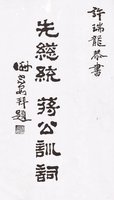 許瑞龍恭書
先總統 蔣公訓詞
題